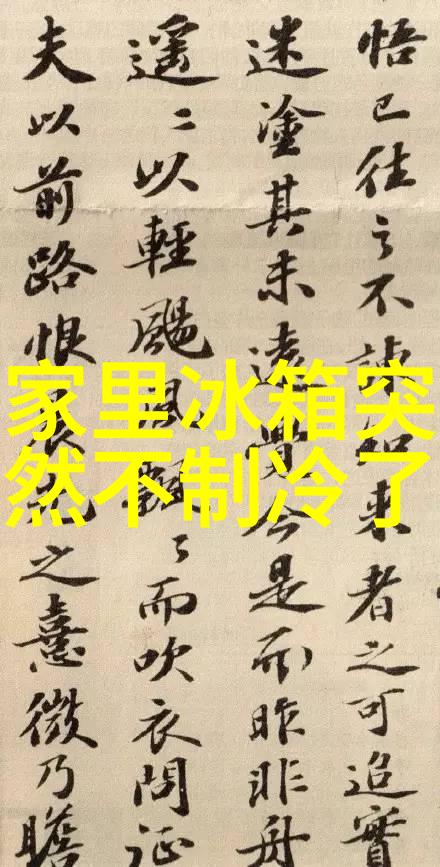 家里冰箱突
然不制冷了
悟已往之不諫知來者之可追實
迷塗其未遠覺今是而昨非舟
遥〻以輕颺風飄〻而吹衣問征
夫以前路恨晨光之熹微乃瞻